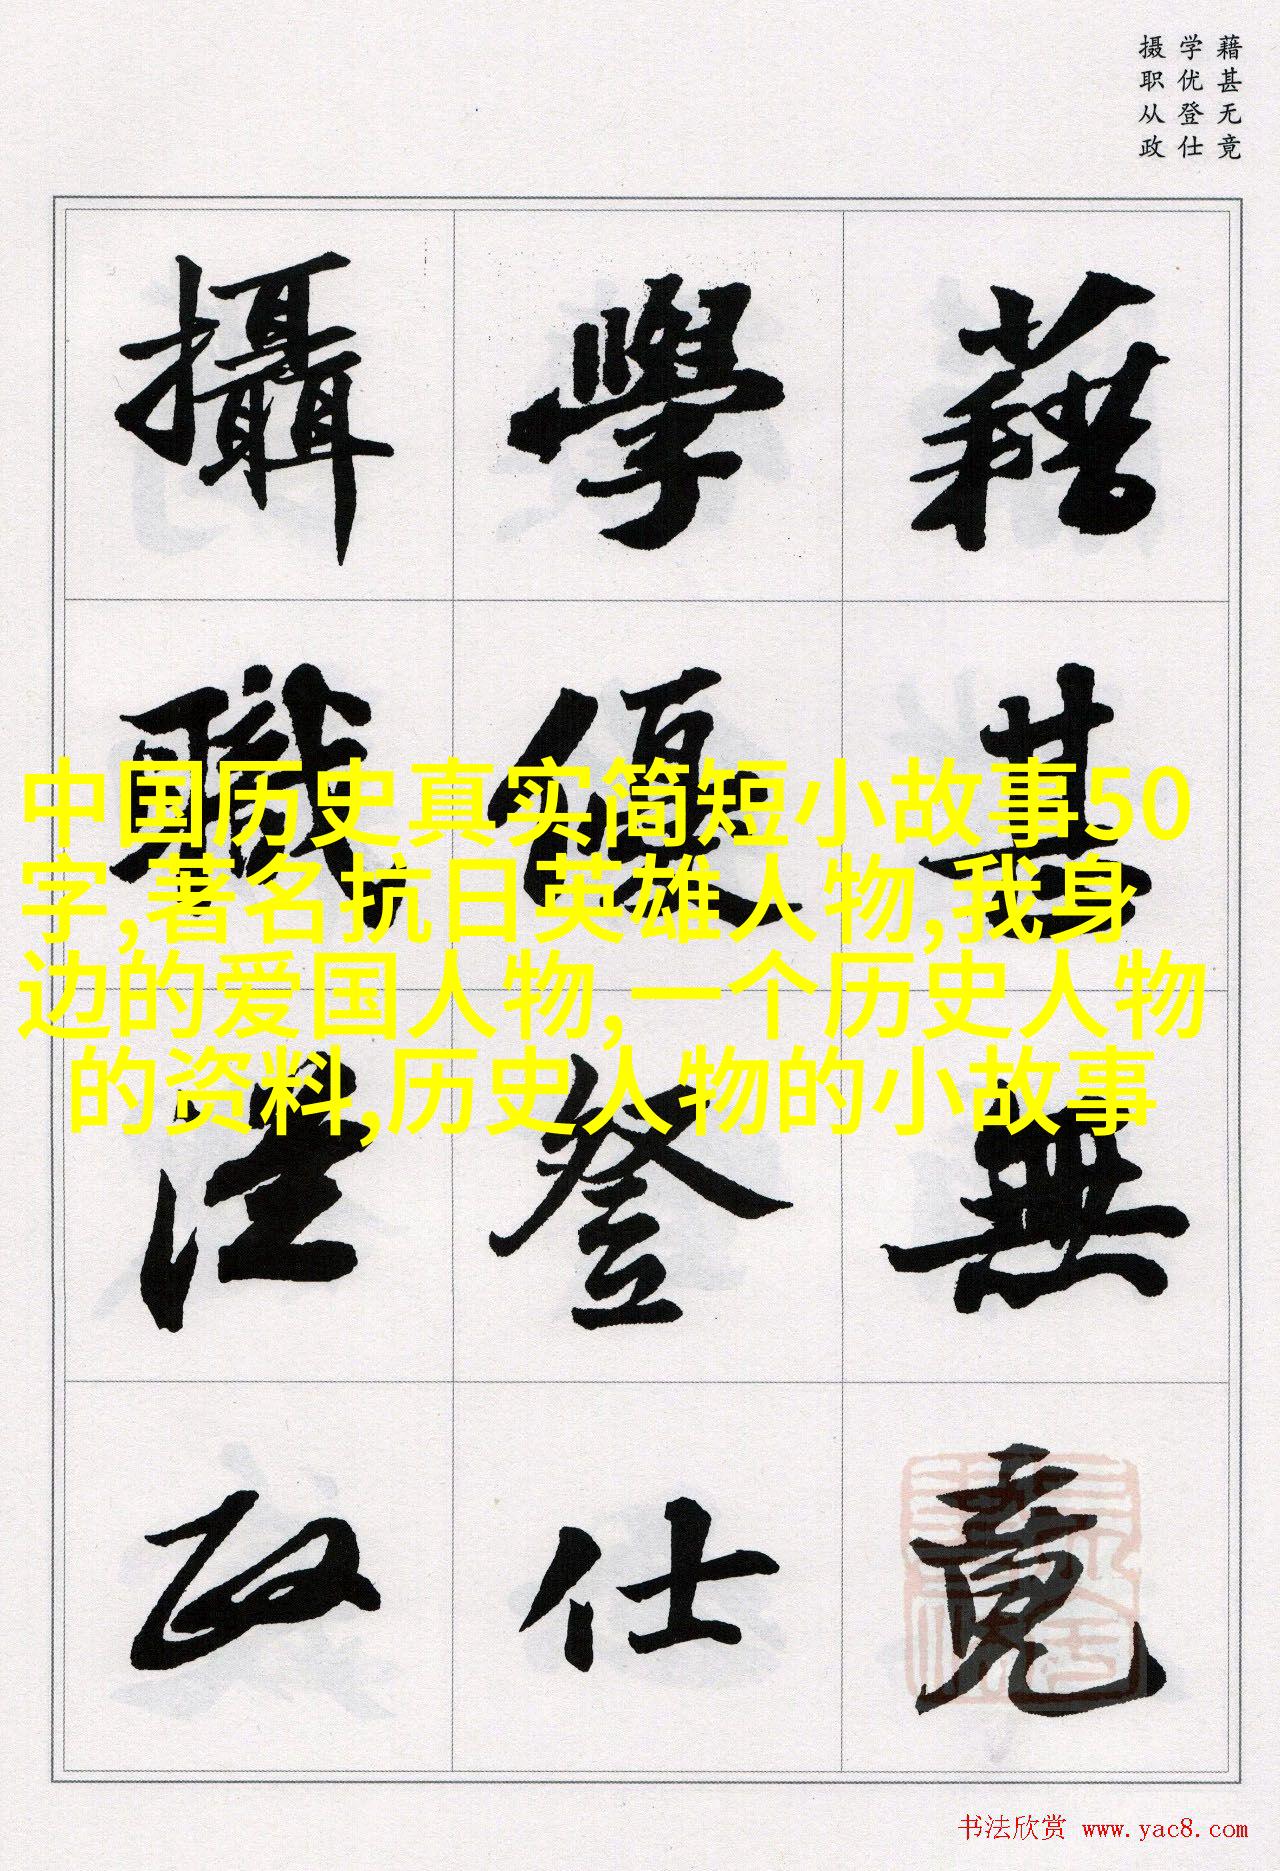 藉甚无竟
学优登仕
摄职从政
藉甚無竟
學優登仕
攝職從政
中国历史真实简短小故事50
字,著名抗日英雄人物,我身
边的爱国人物,一个历史人物
的资料,历史人物的小故事
书法欣赏 www.yac8.com